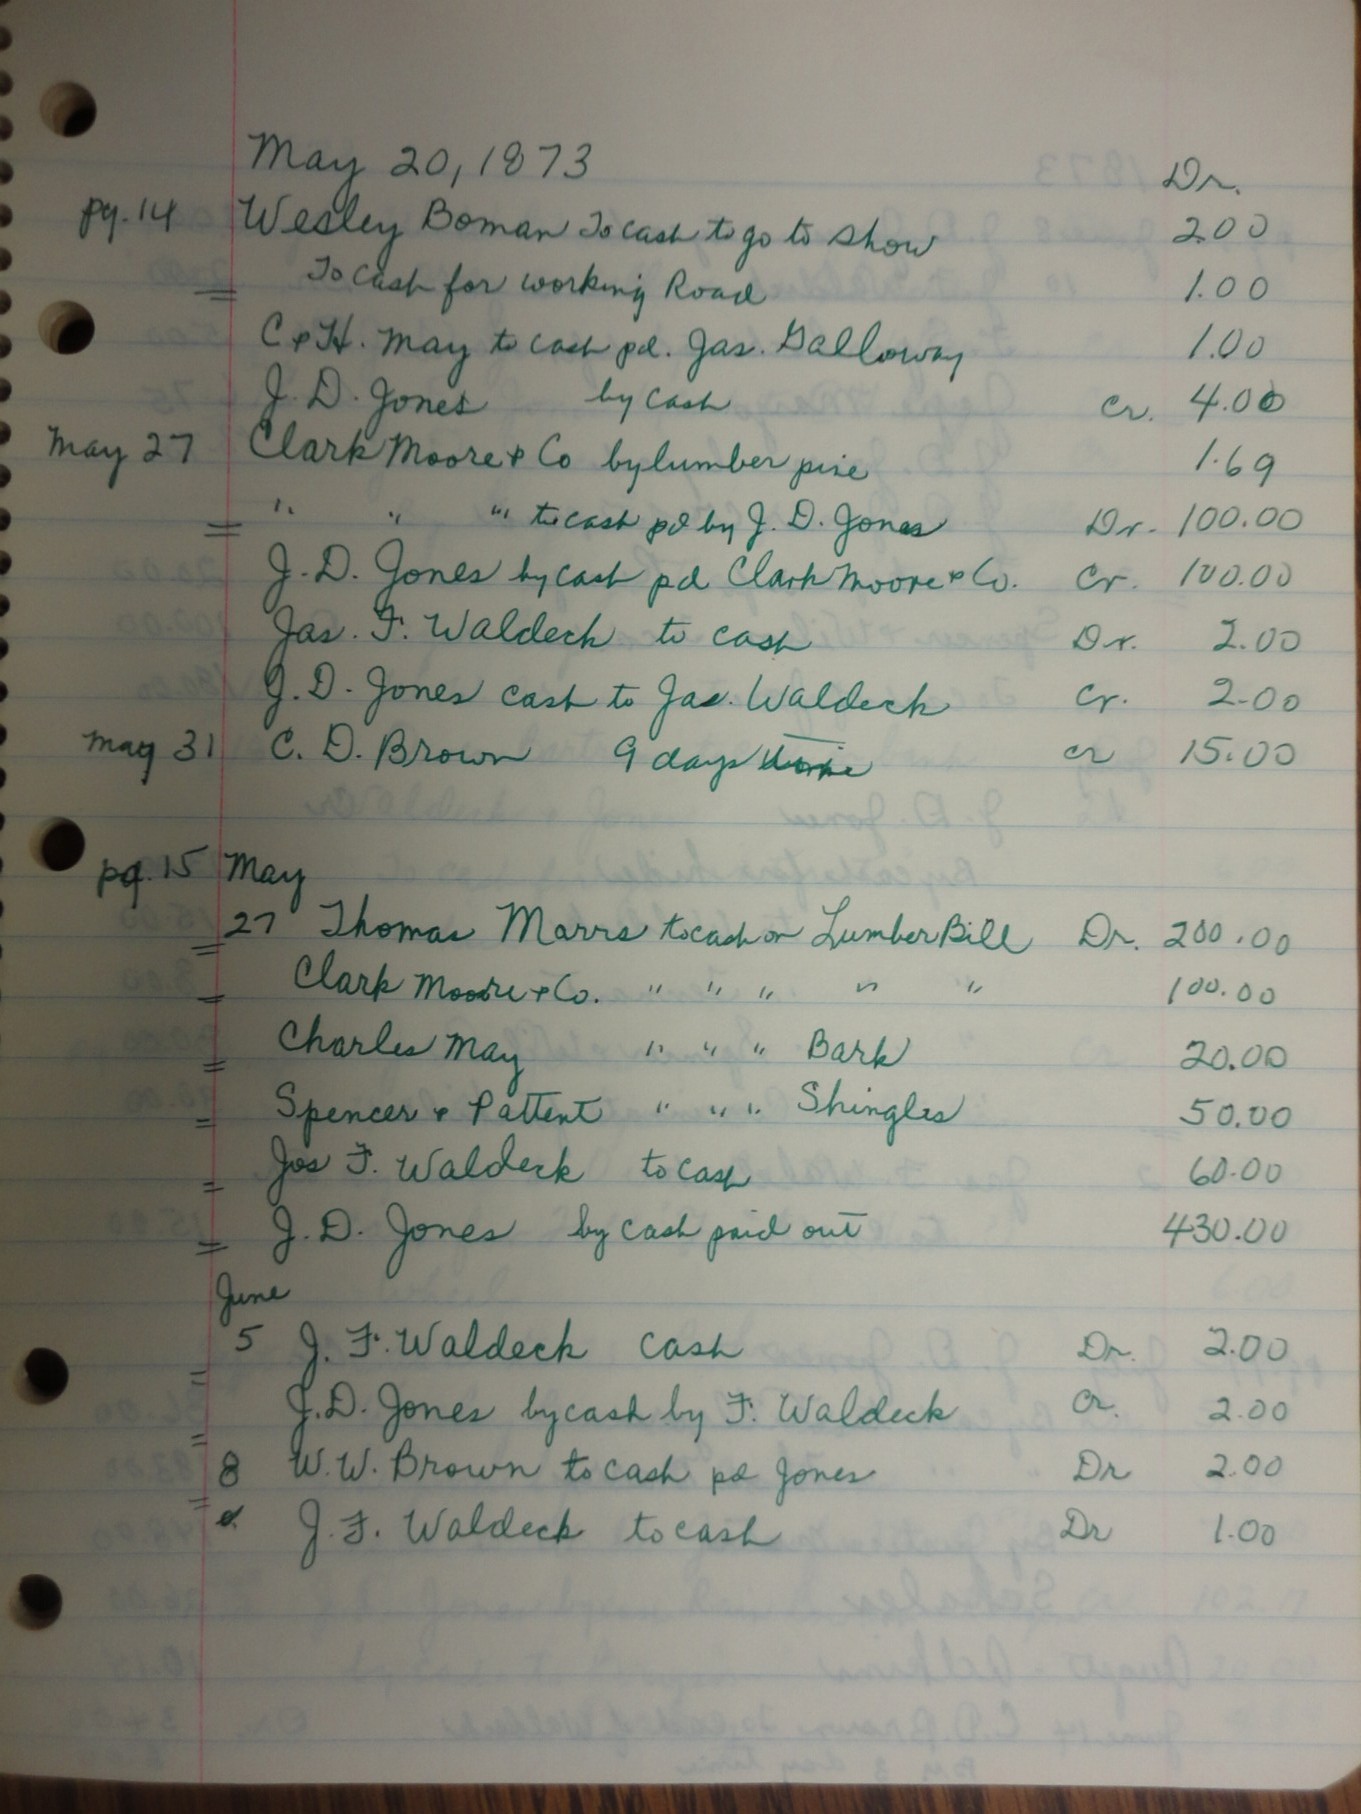 May 20, 1873
Dr.
pg. 14 Wesley Boman To cash to go to show 2.00
= To cash for working Road 1.00
C & H. May to cash pd. Jas. Galloway 1.00
J. D. Jones by cash cr. 4.00
May 27 Clark Moore & Co by lumber pine 1.69
= " " " to cash pd by J. D. Jones Dr. 100.00
J. D. Jones by cash pd Clark Moore & Co. Cr. 100.00
Jas. F. Waldeck to cash Dr. 2.00
J. D. Jones cash to Jas. Waldeck Cr. 2.00
May 31 C. D. Brown 9 days time cr 15.00
pg. 15 May
= 27 Thomas Marrs to cash on Lumber Bill Dr. 200.00
= Clark Moore & Co. " " " " " 100.00
= Charles May " " " Bark 20.00
= Spencer & Pattent " " " Shingles 50.00
= Jos F. Waldeck to cash 60.00
= J. D. Jones by cash paid out 430.00
June
= 5 J. F. Waldeck cash Dr. 2.00
= J. D. Jones by cash by F. Waldeck Cr. 2.00
= 8 W. W. Brown to cash pd Jones Dr 2.00
J. F. Waldeck to cash Dr 1.00